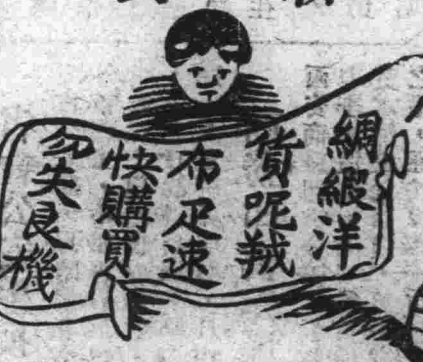 綢緞洋
貨呢羢
布疋速
快購買
勿失良機